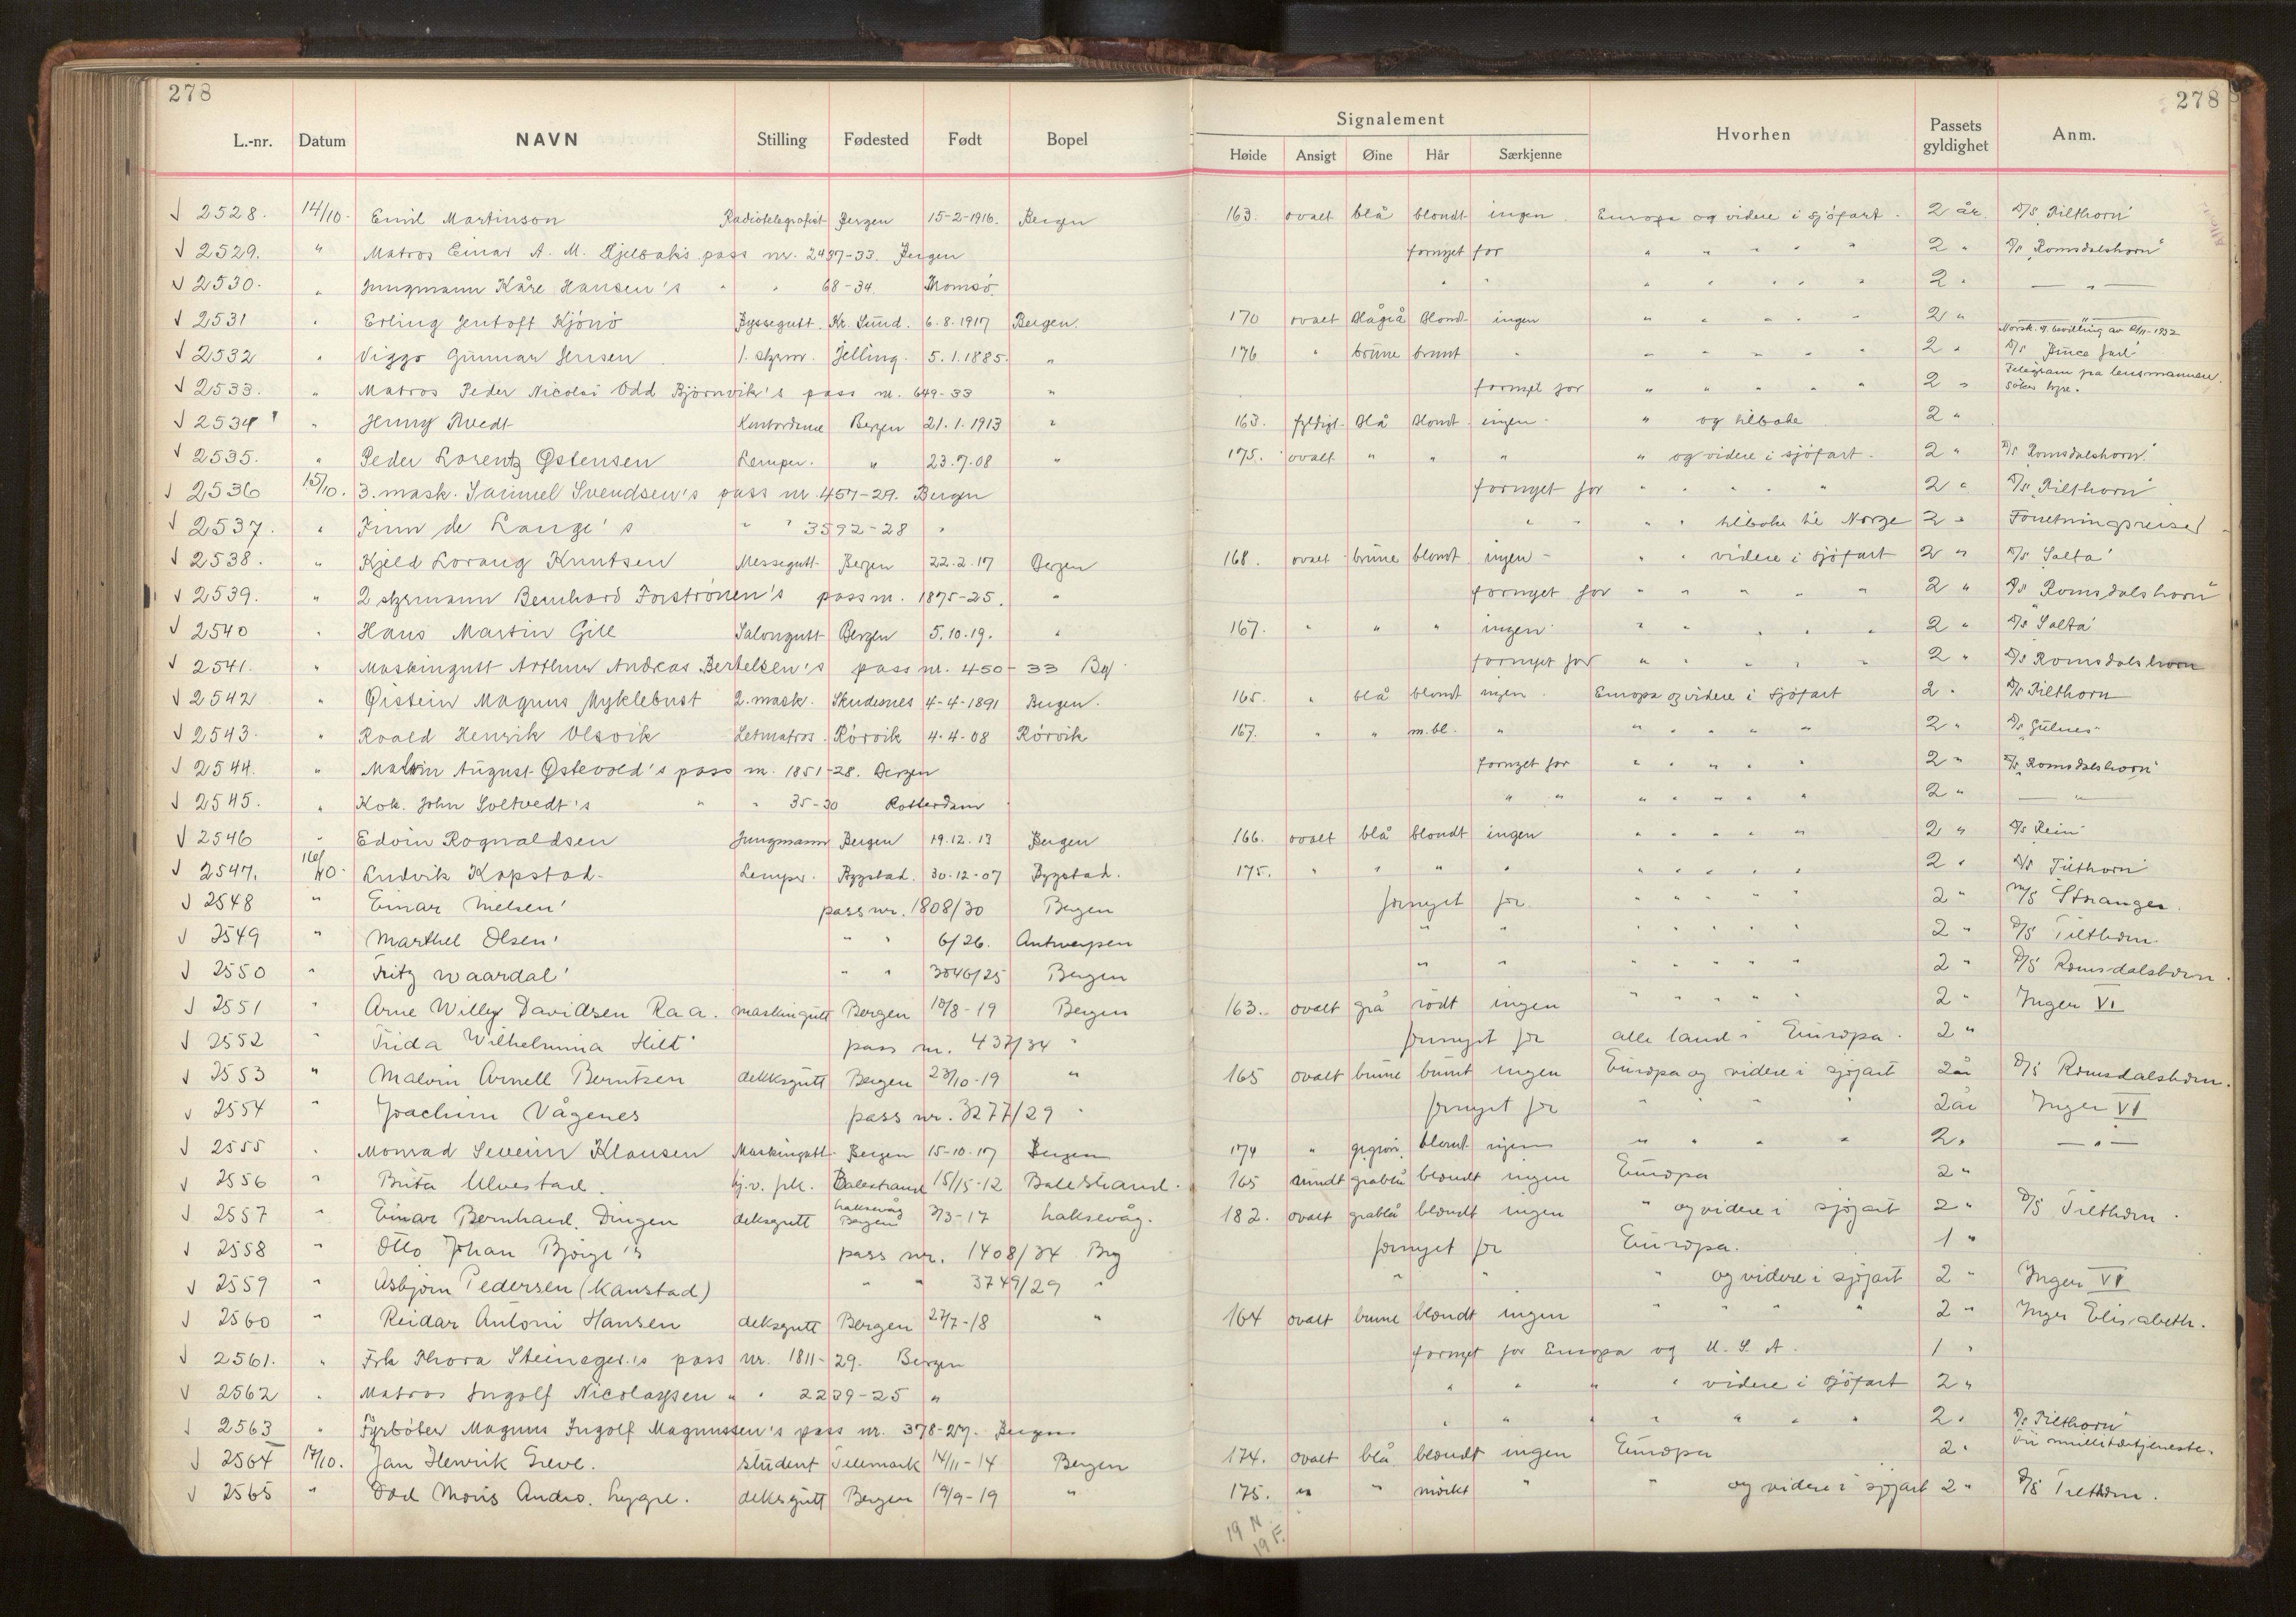 278
278
L.-nr. Datum NAVN Stilling Fødested Født Bopel Signalement Høide Ansigt Øine Hår Særkjenne Hvorhen Passets gyldighet Anm.
√ 2528. 14/10. Emil Martinson Radiotelegrafist Bergen 15-2-1916. Bergen 163. ovalt blå blondt ingen. Europa og videre i sjöfart. 2 år. D/S Tilthorn"
√ 2529. " Matros Einar A. M. pass nr. 2437-33. Bergen fornyet for " " " " " 2 " D/S „Romsdalshorn"
√ 2530. " Jungmann Kåre Hansen's " " 68-34. Tromsö. " " " " " " " 2 " — " —
√ 2531 " Erling Jentoft Kjönö Byssegutt. Kr. Sund. 6.8.1917 Bergen. 170 ovalt blågrå blond ingen " " " " " 2 " — " —
Norsk st. bevilling av 1932
√ 2532 " Viggo Gunnar Jensen 1. styrm. Jelling. 5.1.1885. " 176 " brune brunt " " " " " " 2 " D/S Bruce Jarl"
√ 2533. " Matros Peder Nicolai Odd Björnvik's pass nr. 649-33 " fornyet for " " " " " 2 " Telegram på lensmannen. söker hyre.
√ 2534 " Jenny Tvedt Kontordame Bergen 21.1.1913 " 163. fyldigt. blå blondt ingen - " og tilbake 2 "
√ 2535. " Peder Lorentz Østensen Lemper. " 23.7.08 " 175. ovalt " " " " og videre i sjöfart. 2 " D/S Romsdalshorn"
√ 2536 15/10. 3. mask. Samuel Svendsen's pass nr. 457-29. Bergen fornyet for " " " " " 2 " D/S „Tilthorn"
√ 2537. " Finn de Lange's " " 3592-28 " " " " " tilbake til Norge 2 " Forretningsreise
√ 2538. " Kjeld Lorang Knutsen Messegutt. Bergen 22.2.17 Bergen 168. ovalt brune blondt ingen - " " videre i sjöfart 2 " D/S Salta"
√ 2539. " 2 styrmann Bernhard Forströnen's pass nr. 1875-25. " fornyet for " " " " " 2 " D/S Romsdalshorn"
√ 2540 " Hans Martin Gill Salongutt Bergen 5.10.19. " 167. " " " ingen " " " " " 2 " D/S „Salta"
√ 2541. " Maskingutt Arthur Andreas Bertelsen's pass nr. 450-33 Bg fornyet for " " " " " 2 " D/S Romsdalshorn
√ 2542 " Øistein Magnus Myklebust 2. mask. Skudesnes 4-4-1891 Bergen. 165. " blå blondt ingen. Europa og videre i sjöfart 2 " D/S Tilthorn
√ 2543. " Roald Henrik Olsvik Letmatros. Rörvik 4.4-08 Rörvik 167. " " m.bl. " " " " " " 2 " D/S „Gulnes"
√ 2544. " Malvin August Østevold's pass nr. 1851-28. Bergen fornyet for " " " " " 2 " D/S „Romsdalshorn"
√ 2545. " Kok. John Soltvedt's " " 35-30 Rotterdam " " " " " " " 2 " — " —
√ 2546 " Edvin Rognaldsen Jungmann Bergen 19.12.13 Bergen 166. ovalt blå blondt ingen " " " " " 2 " D/S Rein"
√ 2547. 16/10. Ludvik Kapstad Lemper. Bygstad. 30-12-07 Bygstad. 175. " " " " " " " " " 2 " D/S Tilthorn"
√ 2548 " Einar Nielsen' pass nr. 1808/30 Bergen fornyet for " " " " " 2 " M/S Stranger.
√ 2549 " Marthel Olsen' " " 6/26. Antwerpen " " " " " " " 2 " D/S Tilthorn.
√ 2550 " Fritz Waardal' " " 3846/25 Bergen " " " " " " " 2 " D/S Romsdalshorn.
√ 2551 " Arne Willy Davidsen Raa. maskingutt Bergen 18/8-19 Bergen 163. ovalt grå rödt ingen " " " " " 2 " Inger VI
√ 2552 " Frida Wilhelmina Hilt' pass nr. 437/34 " fornyet for alle land i Europa. 2 "
√ 2553 " Malvin Arnell Berntsen dekksgutt Bergen 23/10-19 " 165 ovalt brune brunt ingen Europa og videre i sjöfart 2 år D/S Romsdalshorn.
√ 2554 " Joachim Vågenes pass nr. 3277/29 " fornyet for " " " " 2 år Inger VI
√ 2555 " Monrad Severin Klausen Maskingutt Bergen 15-10-17 Bergen 174 " grgrön. blondt ingen " " " " 2 " — " —
√ 2556 " Brita Ulvestad. hj.v. frk. Balestrand 15/15-12 Balestrand. 165 rundt gråblå blondt ingen Europa 2 "
√ 2557 " Einar Bernhard. Dingen deksgutt laksevåg Bergen 3/3-17 laksevåg. 182. ovalt gråblå blondt ingen " og videre i sjöfart 2 " D/S Tilthorn.
√ 2558 " Otto Johan Björge's pass nr. 1408/34 Brg fornyet for Europa. 1 "
√ 2559 " Asbjörn Pedersen (Kanstad) " " 3749/29 " " " " og videre i sjöfart 2 " Inger VI
√ 2560 " Reidar Antoni Hansen deksgutt Bergen 27/7-18 " 164 ovalt brune blondt ingen " " " " 2 " Inger Elisabeth.
√ 2561. " Frk Thora Steinager's pass nr. 1811-29. Bergen fornyet for Europa og U. S. A. 1 "
√ 2562 " Matros Ingolf Nicolaysen " " 2239-25 " " " " " videre i sjöfart 2 "
√ 2563 " Fyrböter Magnus Ingolf Magnussen's pass nr. 378-27. Bergen " " " " " " " 2 " D/S Tilthorn"
√ 2564 17/10. Jan Henrik Greve. student Telemark 14/11-14 Bergen 174. ovalt blå blondt ingen Europa 2 " fri millitærtjeneste.
√ 2565 " Odd Moris Andrs. Lygre. deksgutt Bergen 19/9-19 " 175. " " mörkt " " og videre i sjöfart 2 " D/S Tilthorn.
19 N.
19 F.